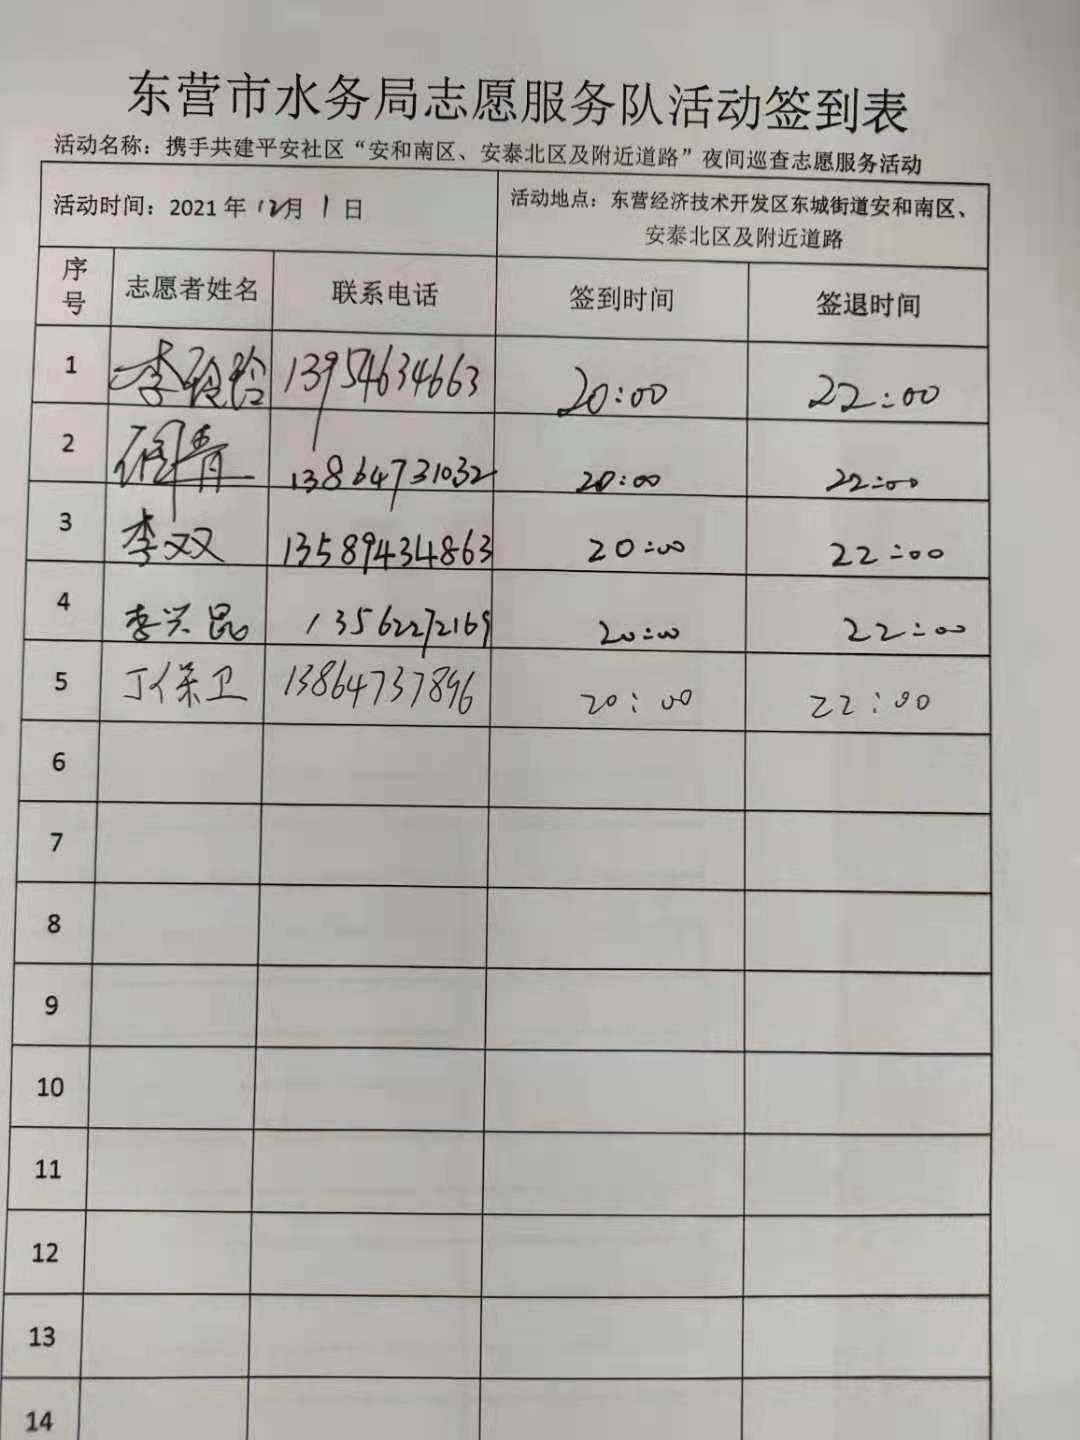 东营市水务局志愿服务队活动签到表
活动名称：携手共建平安社区“安和南区、安泰北区及附近道路”夜间巡查志愿服务活动
活动时间：2021 年 12月 1 日
活动地点：东营经济技术开发区东城街道安和南区、
安泰北区及附近道路
序号 志愿者姓名 联系电话 签到时间 签退时间
1 李 13954634663 20:00 22:00
2 青 13864731032 20:00 22:00
3 李双 13589434863 20:00 22:00
4 李兴昆 13562272169 20:00 22:00
5 丁保卫 13864737896 20:00 22:00
6
7
8
9
10
11
12
13
14